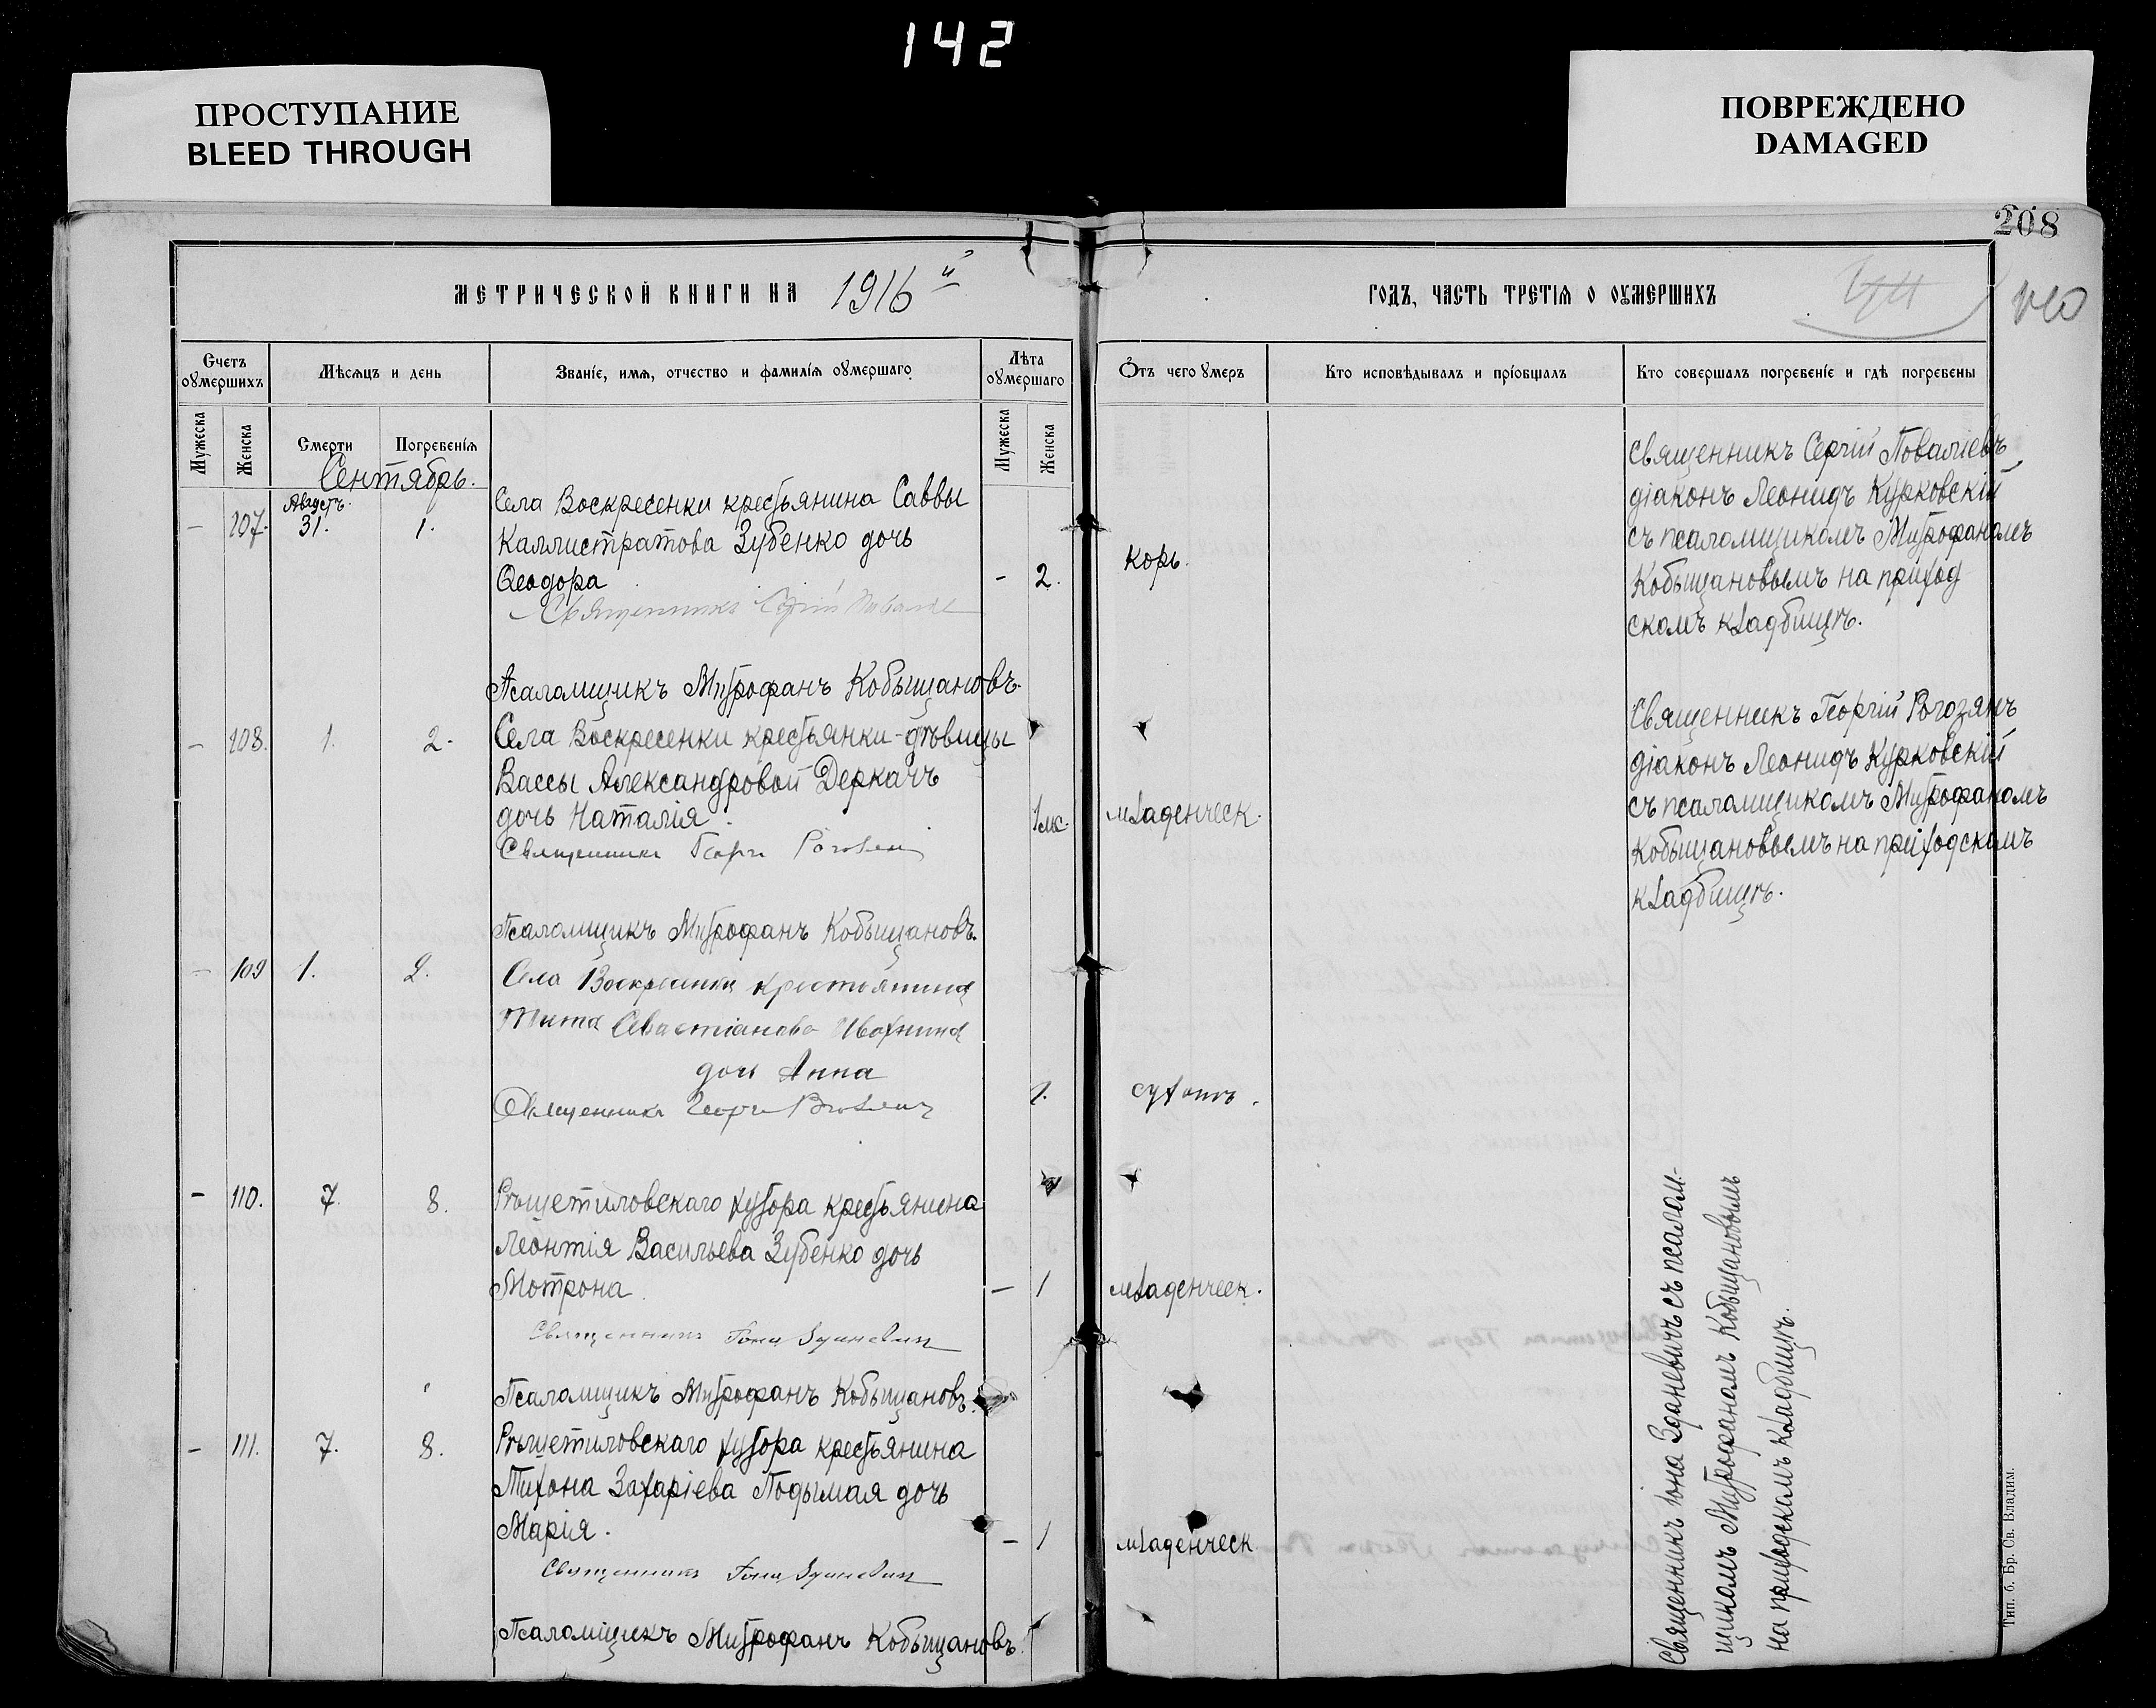 142
ПРОСТУПАНИЕ
BLEED THROUGH
ПОВРЕЖДЕНО
DAMAGED
208
МЕТРИЧЕСКОЙ КНИГИ НА 1916й
ГОДЪ, ЧАСТЬ ТРЕТІЯ О ОУМЕРШИХЪ
Счетъ оумершихъ
Мѣсяцъ и день
Званіе, имя, отчество и фамилія оумершаго
Лѣта оумершаго
Отъ чего умеръ
Кто исповѣдывалъ и пріобщалъ
Кто совершалъ погребеніе и гдѣ погребены
Мужеска
Женска
Смерти
Погребенія
Мужеска
Женска
Сентябрь.
Августъ.
– 107. 31. 1.
Села Воскресенки крестьянина Саввы
Каллистратова Зубенко дочь
Ѳеодора
– 2.
Корь.
Священникъ Сергій Поваліевъ
діаконъ Леонидъ Курковскій
съ псаломщикомъ Митрофаномъ
Кобыщановымъ на приход
скомъ кладбищѣ.
Священникъ Сергій
Псаломщикъ Митрофанъ Кобыщановъ.
– 108. 1. 2.
Села Воскресенки крестьянки-дѣвицы
Вассы Александровой Деркачъ
дочь Наталія.
1 мс.
младенческ.
Священникъ Георгій Рогозянъ
діаконъ Леонидъ Курковскій
съ псаломщикомъ Митрофаномъ
Кобыщановымъ на приходскомъ
кладбищѣ.
Священникъ Георгій
Псаломщикъ Митрофанъ Кобыщановъ.
– 109 1. 2.
Села Воскресенки крестьянина
Тита Севастіанова Ивахнина
дочь Анна
1.
сухотъ.
Священникъ Георгій
– 110. 7. 8.
Рѣшетиловскаго хутора крестьянина
Леонтія Васильева Зубенко дочь
Мотрона
– 1
младенческ.
Священникъ Іона Зданевичъ
Псаломщикъ Митрофанъ Кобыщановъ.
– 111. 7. 8.
Рѣшетиловскаго хутора крестьянина
Тихона Захаріева Подымая дочь
Марія.
– 1
младенческ
Священникъ Іона Зданевичъ
Псаломщикъ Митрофанъ Кобыщановъ.
Священникъ Іона Зданевичъ съ псалом-
щикомъ Митрофаномъ Кобыщановымъ
на приходскомъ кладбищѣ.
Тип. б. Бр. Св. Владим.